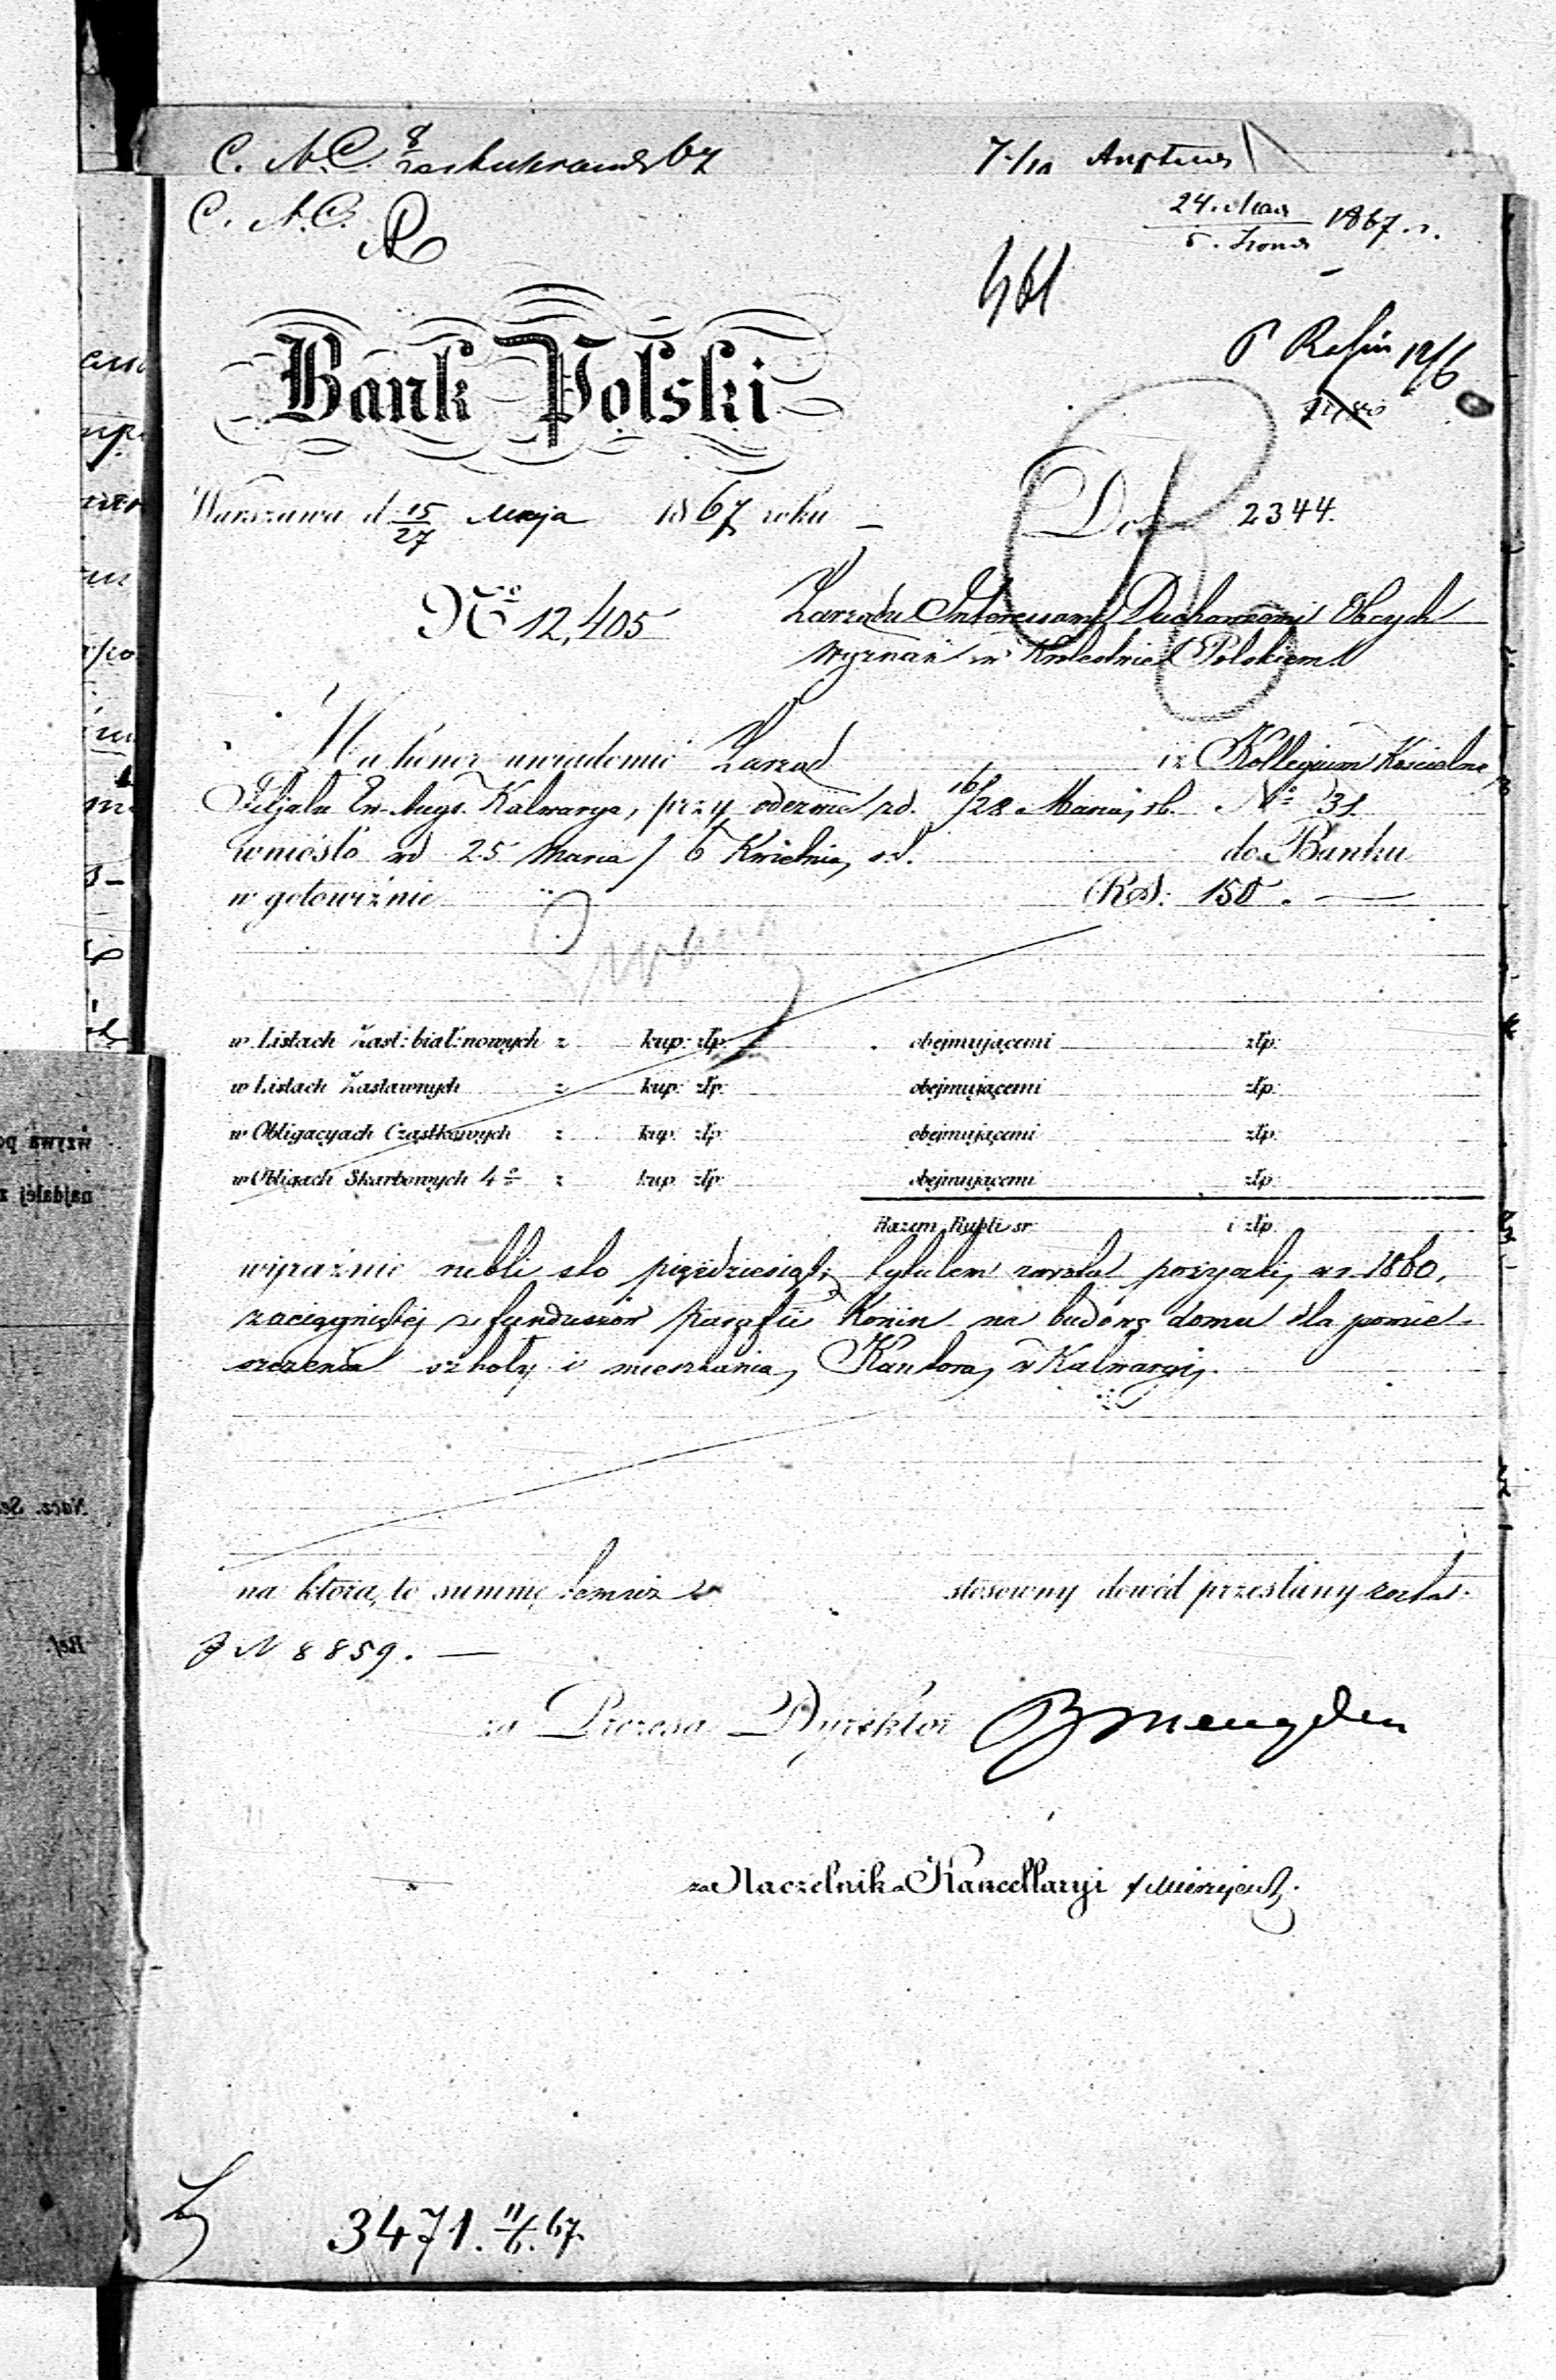 C. N. C.
7/10
C. N. C.
24. Maja
5. 1867. r.
461
P 12/6
Bank Polski
Warszawa d. 15/27 Maja 1867 roku
Do 2344.
Nº 12,405
Zarządu Interessami Duchownemi Obcych
Wyznań w Królestwie Polskiem.
Ma honor uwiadomić Zarząd iż Kollegium Kościelne
Filjału Ew. Augs. Kalwarya, przy odezwie zd. 16/28 Marca, rb. Nº 31.
wniosło zd 25 Marca / 6 Kwietnia, r.b. do Banku
w gotowiźnie RS: 150. —
w Listach Zast: biał: nowych z kup: złp: obejmującemi złp:
w Listach Zastawnych z kup: złp: obejmującemi złp:
w Obligacyach Cząstkowych z kup: złp: obejmującemi złp:
w Obligach Skarbowych 4% z kup: złp: obejmującemi złp:
Razem Rubli sr: i złp:
wyraźnie rubli sto pięćdziesiąt, tytułem zwrotu pożyczki, w r. 1860,
zaciągniętej z funduszów parafii Konin na budowę domu dla pomie-
szczenia szkoły i mieszkania, Kantora, w Kalwaryi,
na którą to summę stosowny dowód przesłany został.
J N 8859. —
za Prezesa Dyrektor B Mengden
za Naczelnika Kancellaryi
3471. 11/6. 67.
wzywa po
najdalej z
Nacz. Se
Ref.